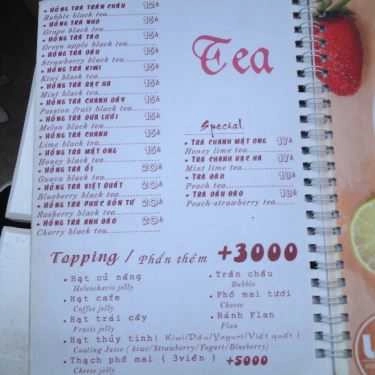 HỒNG TRÀ TRÂN CHÂU 15k
Bubble black tea
HỒNG TRÀ NHO 15k
Grape black tea
HỒNG TRÀ TÁO 15k
Green apple black tea
HỒNG TRÀ DÂU 15k
Strawberry black tea
HỒNG TRÀ KIWI 15k
Kiwi black tea
HỒNG TRÀ BẠC HÀ 15k
Mint black tea
HỒNG TRÀ CHANH DÂY 15k
Passion fruit black tea
HỒNG TRÀ DƯA LƯỚI 15k
Melon black tea
HỒNG TRÀ CHANH 15k
Lime black tea
HỒNG TRÀ MẬT ONG 15k
Honey black tea
HỒNG TRÀ ỔI 20k
Guava black tea
HỒNG TRÀ VIỆT QUẤT 20k
Blueberry black tea
HỒNG TRÀ PHÚC BỒN TỬ 20k
Rasberry black tea
HỒNG TRÀ ANH ĐÀO 20k
Cherry black tea
Tea
Special
TRÀ CHANH MẬT ONG 17k
Honey lime tea
TRÀ CHANH BẠC HÀ 17k
Mint lime tea
TRÀ ĐÀO
Peach tea
TRÀ DÂU ĐÀO
Peach-strawberry tea
Topping / Phần thêm +3000
Hạt củ năng
jelly
Hạt cafe
Coffee jelly
Hạt trái cây
Fruits jelly
Hạt thủy tinh ( Kiwi/Dâu/Yogurt/Việt quất )
Coating Juice ( kiwi/Strawberry/Yogurt/Blueberry)
Thạch phổ mai ( 3viên ) +5000
Cheese jelly
Trân châu
Bubble
Phô mai tươi
Cheese
Bánh Flan
Flan